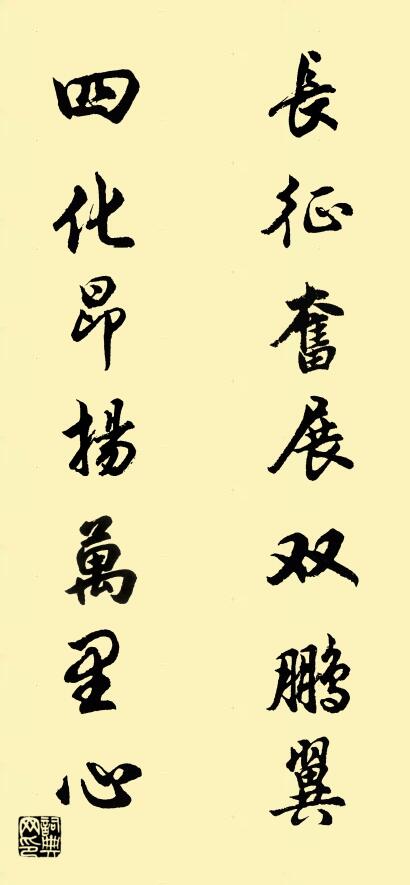 長征奮展双鵬翼
四化昂揚萬里心